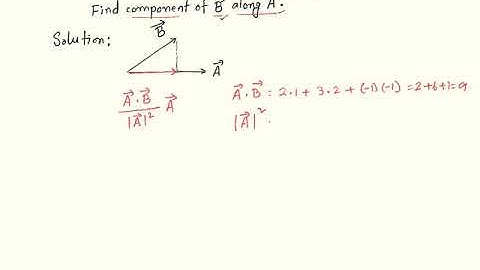 Find component of B⃗ along A⃗.
Solution:
B⃗
A⃗
A⃗·B⃗ / |A⃗|² A⃗
A⃗·B⃗ = 2·1 + 3·2 + (-1)(-1) = 2+6+1=9
|A⃗|²